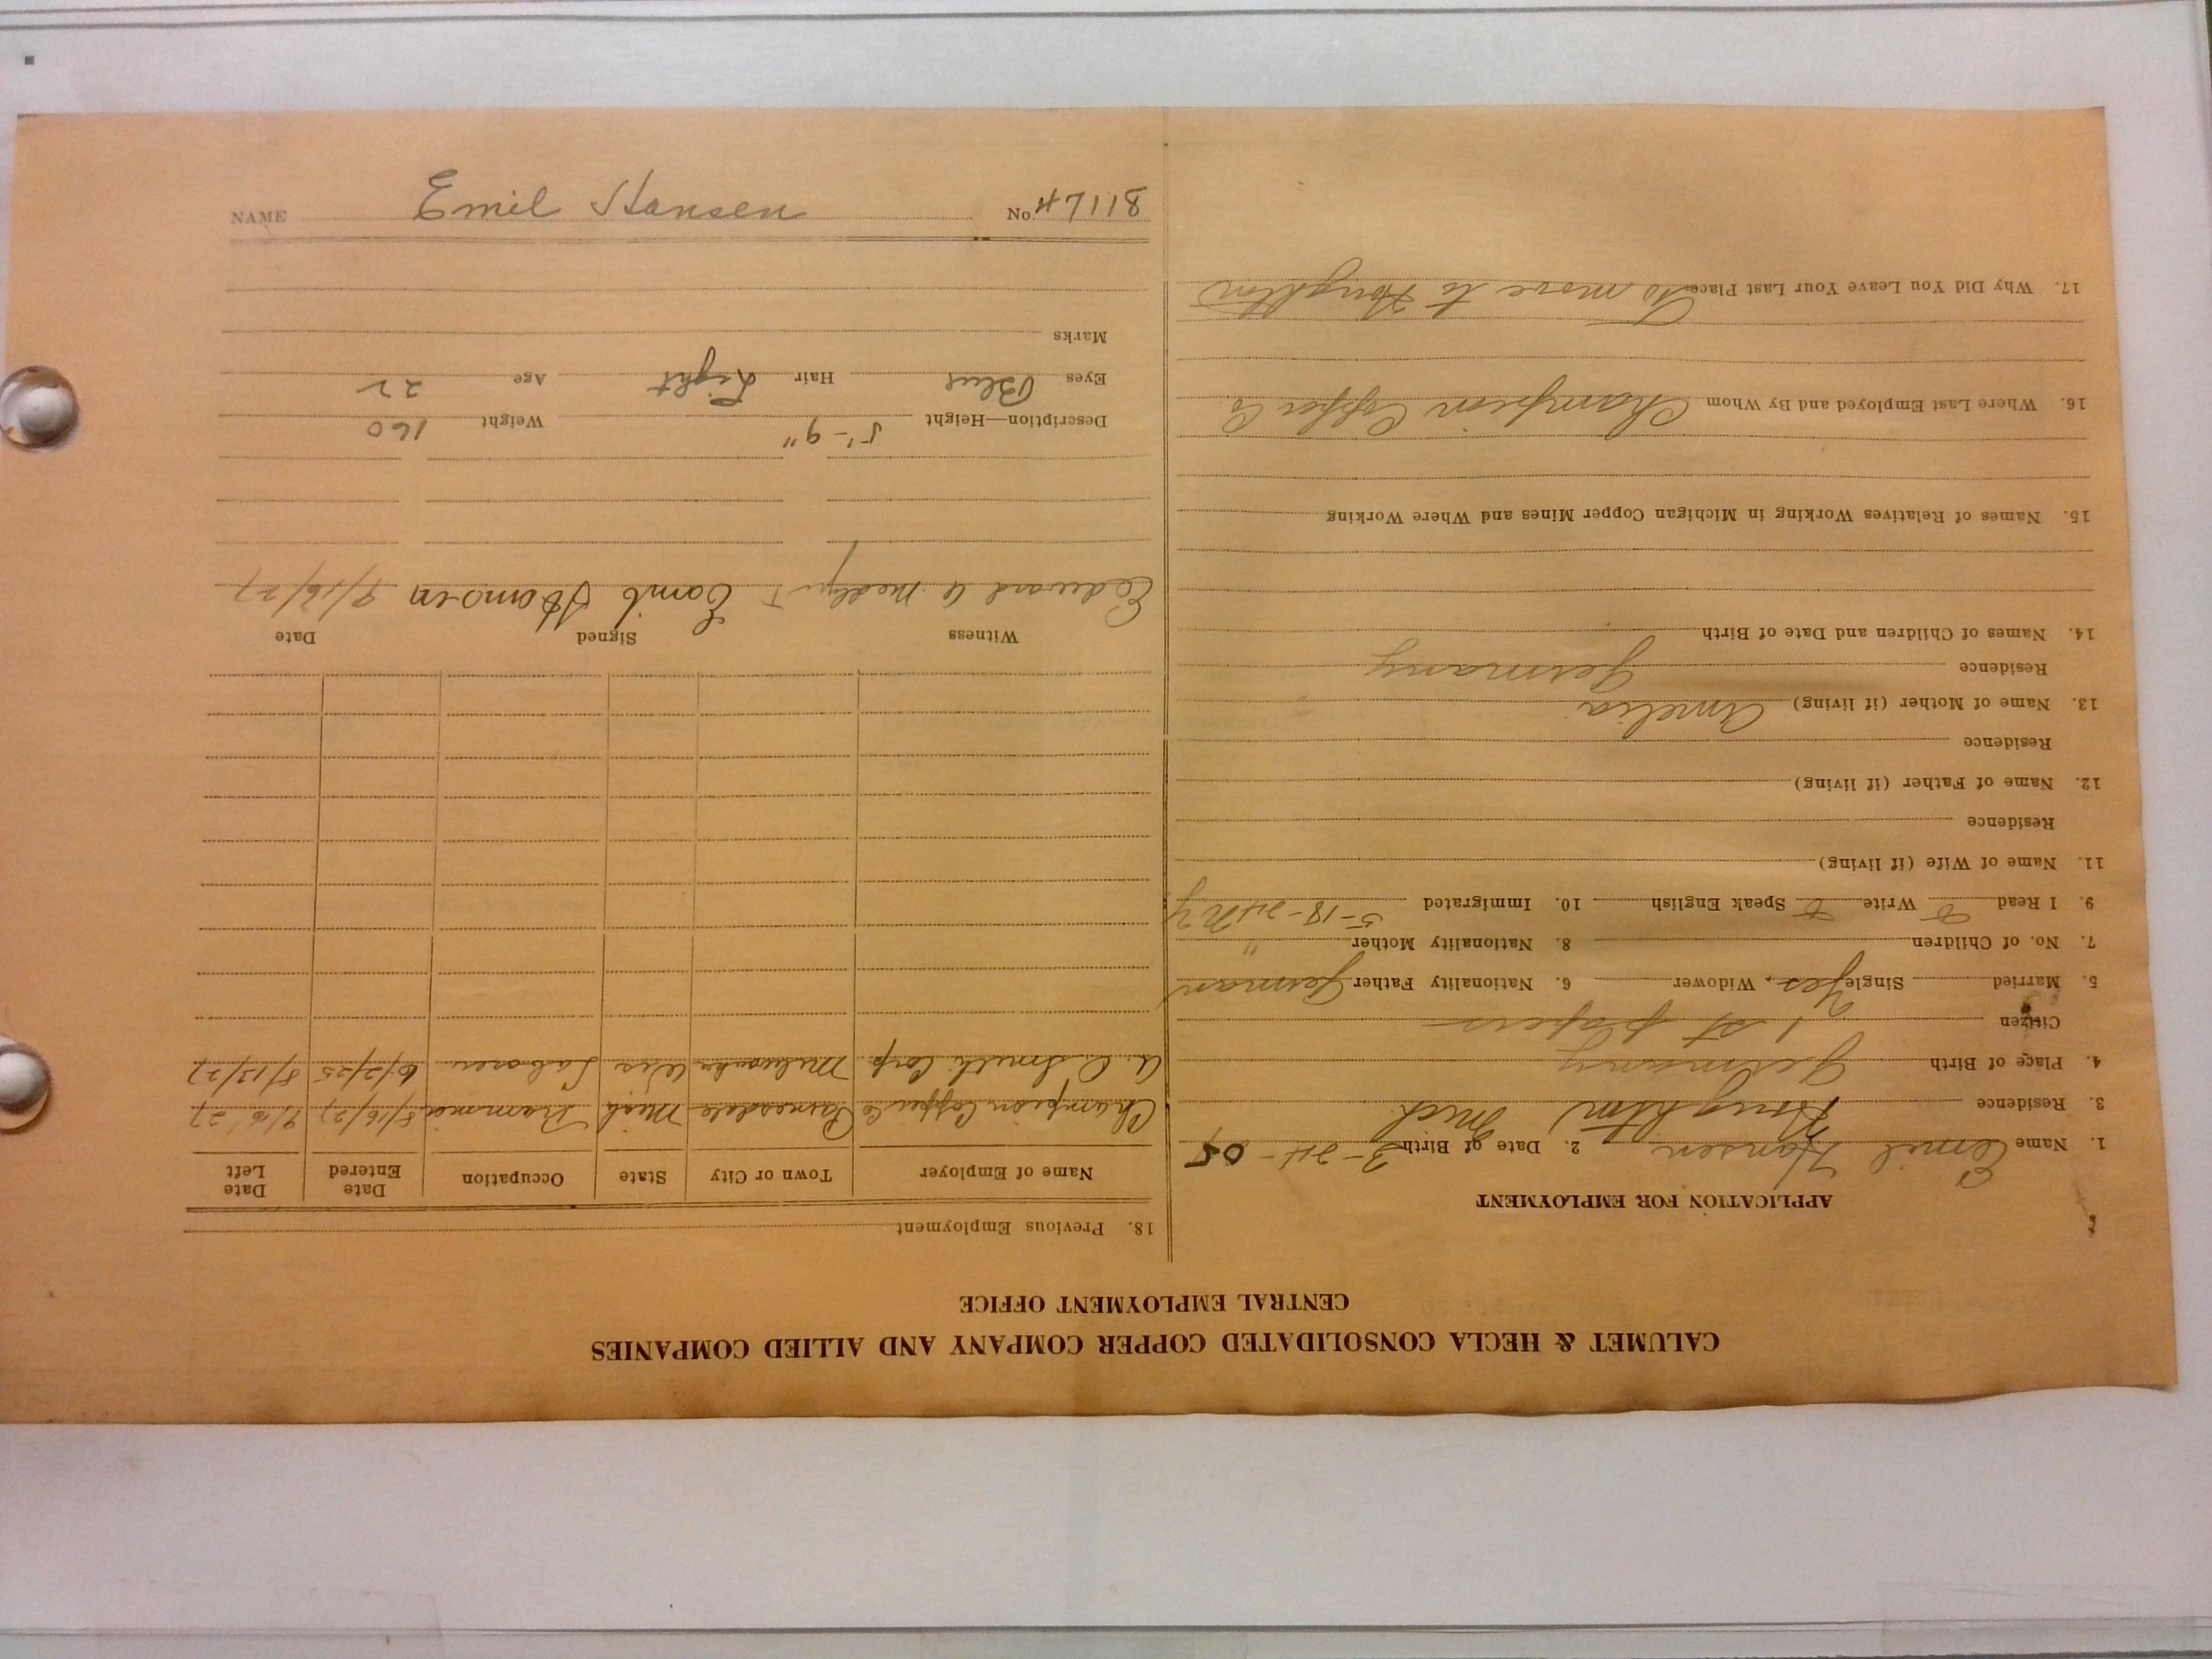 CALUMET & HECLA CONSOLIDATED COPPER COMPANY AND ALLIED COMPANIES
CENTRAL EMPLOYMENT OFFICE
APPLICATION FOR EMPLOYMENT
1. Name Emil Hansen 2. Date of Birth 3-24-05
3. Residence Houghton Mich
4. Place of Birth Germany
Citizen 1st papers
5. Married Single Yes, Widower 6. Nationality Father German
7. No. of Children 8. Nationality Mother "
9. I Read Write Speak English 10. Immigrated 5-18-24 NY
11. Name of Wife (if living)
Residence
12. Name of Father (if living)
Residence
13. Name of Mother (if living) Amelia
Residence Germany
14. Names of Children and Date of Birth
15. Names of Relatives Working in Michigan Copper Mines and Where Working
16. Where Last Employed and By Whom Champion Copper Co.
17. Why Did You Leave Your Last Place To move to Houghton
18. Previous Employment
Name of Employer Town or City State Occupation Date Entered Date Left
Champion Copper Co Painesdale Mich Trammer 8/16/27 9/10/27
A. O. Smith Corp Milwaukee Wis Laborer 6/2/25 8/13/27
Witness Signed Date
Edward Emil Hansen 9/16/27
Description—Height 5'-9" Weight 160
Eyes Blue Hair Light Age 22
Marks
NAME Emil Hansen No. 8117H